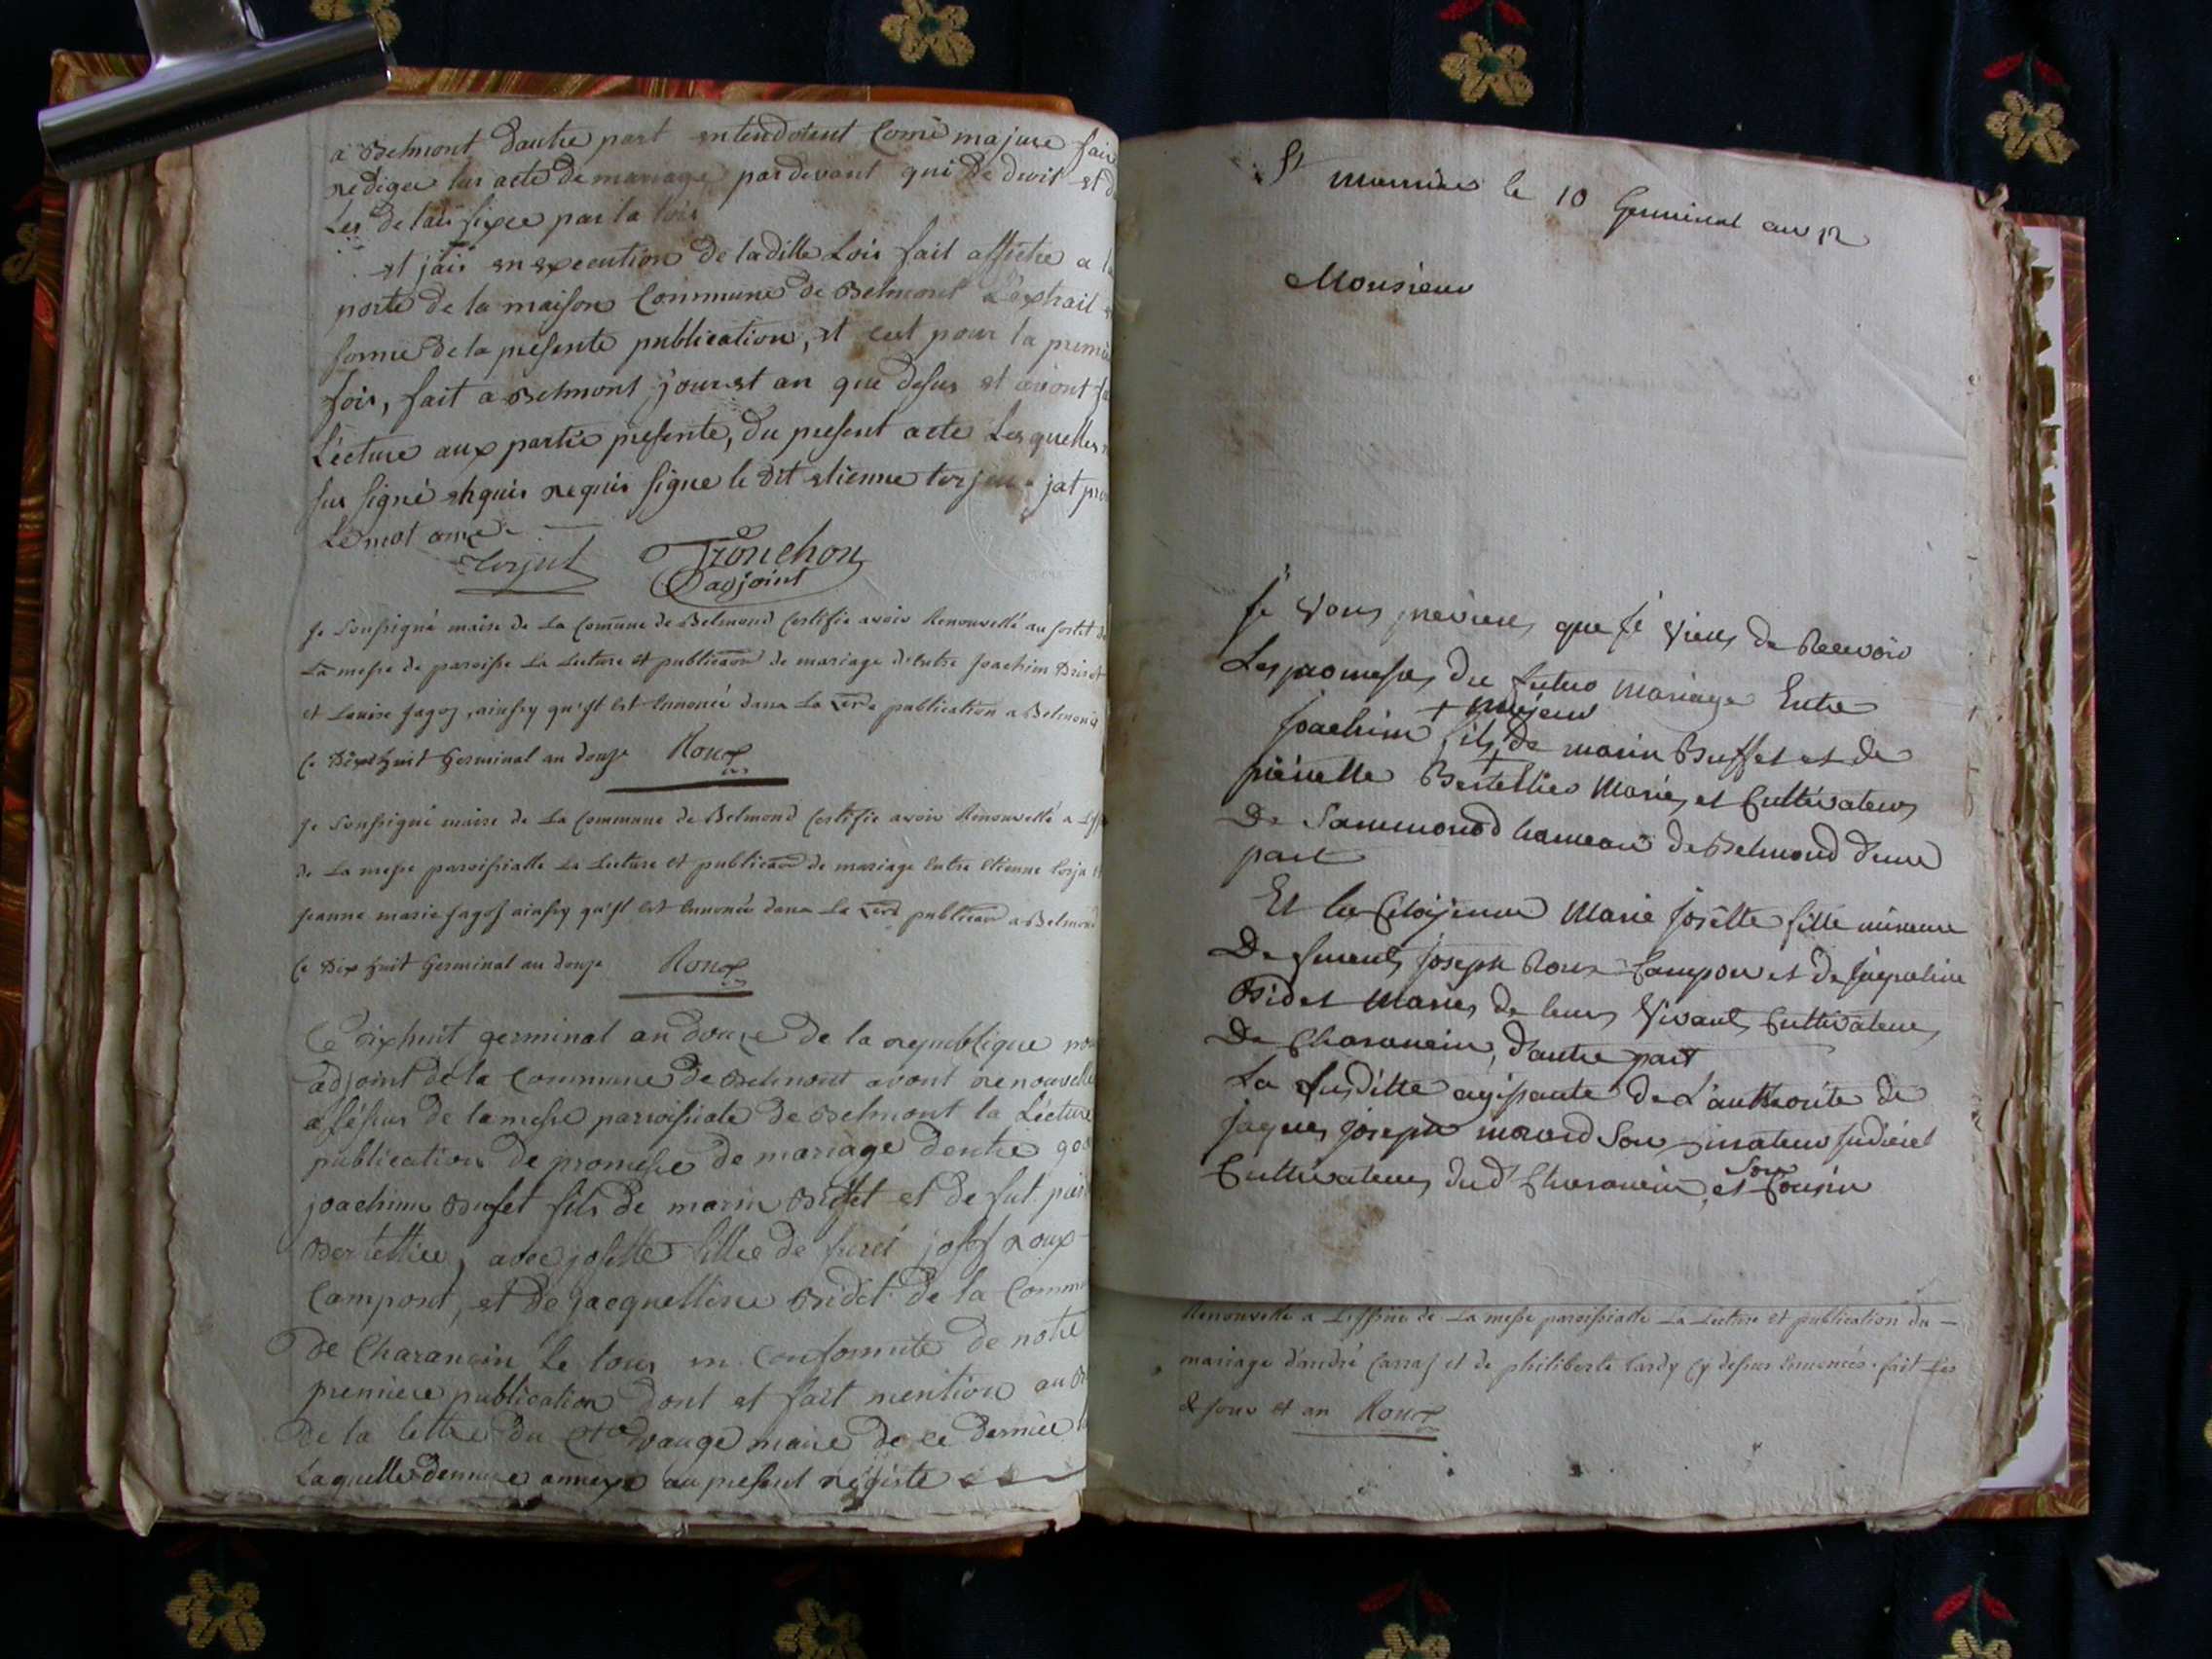 a Belmont dautre part entendotent Come majure fair
rediger lur acte de mariage pardevant qui de droit et d
Les delais fixee par la lois
et jais en execution de ladille Lois fait affiche a la
porte de la maison Commune de Belmont L'extrait
forme de la presente publication, et cut pour la premie
fois, fait a Belmont jour et an que desus et avont fa
Lecture aux partie presente, du present acte Les quelles
sur signé requis signe le dit etienne
Le mot
Torjat Tronchon
adjoint
Je Soussigné maire de La Comune de Belmond Certifie avoir Renouvellé au sortet de
La messe de paroisse La Lecture et publicaon de mariage d'Entre Joachim
et Louise Jagoz, ainsy qu'il est Ennoncé dans La publication a Belmond
Ce Dixhuit Germinal an douze Roux
Je Soussigné maire de La Commune de Belmond Certifie avoir Renouvellé a
de La messe paroissialle La Lecture et publicaon de mariage Entre Etienne Torja et
Jeanne marie Jagoz ainsy qu'il est Ennoncé dans La publicaon a Belmond
Ce Dix huit Germinal an douze Roux
Ce dixhuit germinal an douze de la republique nous
adjoint de la Commune de Belmont avont renouvelle
a l'éssus de la messe paroissiale de Belmont la Lecture
publication de promesse de mariage dentre
joachim Bufet fils de marin Buffet et de fut
Bertellier, avec josette fillie de josef roux
Campont, et de Jacquelline Bidet de la Commune
De Charancin Le tous en Conformite de notre
premiere publication dont et fait mention au
De la lettre du maire de ce dernier
Laquelle annexe au present régiste
St le 10 Germinal an 12
Monsieur
Je vous previens que Je viens de Recevoir
Les promesses du futur mariage Entre
+ majeur
Joachim fils + de marin Buffet et de
piérrette Bertellier Mariés et Cultivateurs
De Sammonod hameau de Belmond d'une
part
Et la Citoyenne Marie Josette fille mineure
De Joseph Roux Campon et de Jaqueline
Bidet Mariés de leurs Vivant Cultivateurs
De Charancin, d'autre part
La susditte agissante de L'authorite de
Jaques Joseph morard Son Curateur Judiciel
son
Cultivateur dud Charancin, et Cousin
Renouvellé a L'issüe de La messe paroissialle La Lecture et publication du -
mariage d'andré Carraz et de philiberte Cardy Cy dessus Ennoncés. fait Les
& jour et an Roux